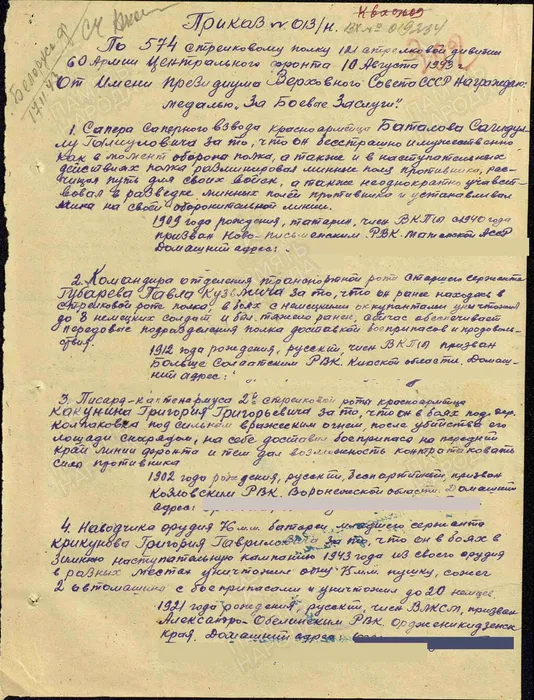 Приказ № 013/н.
По 574 стрелковому полку 121 стрелковой дивизии
60 Армии Центрального фронта 10 Августа 1943
От Имени Президиума Верховного Совета СССР Награждаю:
медалью „За Боевые Заслуги"
1. Сапера Саперного взвода красноармейца Баталова
за то, что он бесстрашно и мужественно
как в момент обороны полка, а также и в наступательных
действиях полка разминировал минные поля противника, рас-
чищая путь для своих войск, а также неоднократно участ-
вовал в разведке минных полей противника и устанавливал
мины на своей оборонительной линии.
1909 года рождения, татарин, член ВКП(б) с 1940 года
призван РВК. АССР
Домашний адрес:
2. Командира отделения транспортной роты сержанта
Губарева Павла Кузьмича за то, что он ранее находясь в
стрелковой роте полка, в боях с немецкими оккупантами уничтожил
до 8 немецких солдат и был тяжело ранен, сейчас обеспечивает
передовые подразделения полка доставкой боеприпасов и продоволь-
ствия.
1912 года рождения, русский, член ВКП(б) призван
Больше Солдатским РВК. Курской области. Домаш-
ний адрес:
3. Писаря-каптенармуса 2й стрелковой роты красноармейца
Какунина Григория Григорьевича за то, что он в боях под дер.
Колпаковка под сильным вражеским огнем, после убийства его
лошади снарядом, на себе доставил боеприпасы на передний
край линии фронта и тем дал возможность контратаковать
силы противника
1902 года рождения, русский, беспартийный, призван
Козловским РВК. Воронежской области. Домашний
адрес:
4. Наводчика орудия 76 м.м. батареи, младшего сержанта
Крикунова Григория Гавриловича за то, что он в боях в
Зимнюю наступательную кампанию 1943 года из своего орудия
в разных местах уничтожил одну 75 м.м. пушку, сжег
2 автомашины с боеприпасами и уничтожил до 20 немцев.
1921 года рождения, русский, член ВЛКСМ, призван
Александро-Обелинским РВК. Орджоникидзевск.
Края. Домашний адрес: